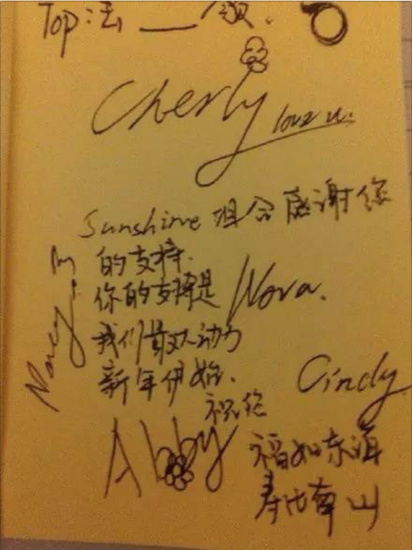 Top:法 __ 领.
Cherly love u.
Sunshine 组合感谢您
的支持.
你的支持是
Nova.
我们最大动力
新年伊始.
Cindy
祝您
Abby
福如东海
寿比南山